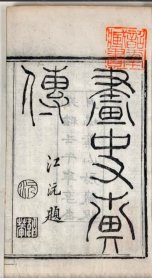 畫史彙
傳
江沅題